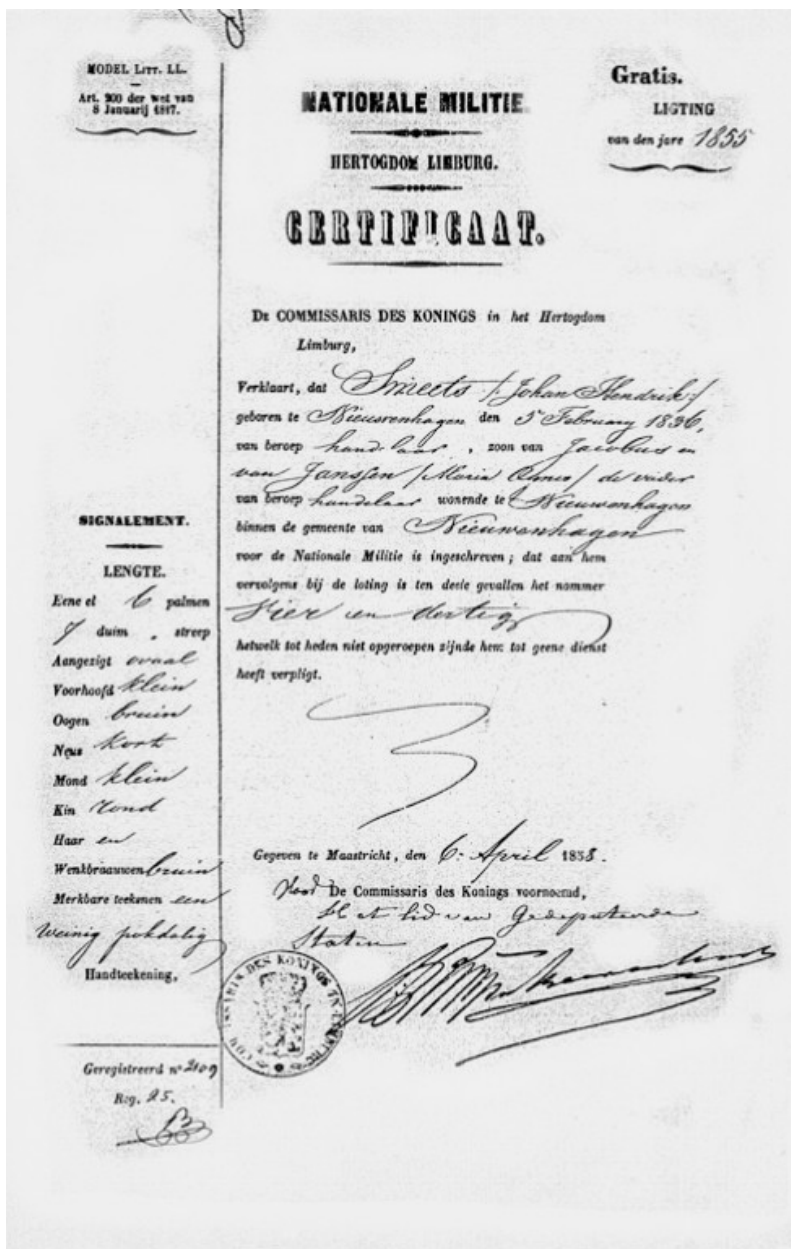 MODEL LITT. LL.
Art. 200 der wet van
8 Januarij 1817.
NATIONALE MILITIE
HERTOGDOM LIMBURG.
CERTIFICAAT.
Gratis.
LIGTING
van den jare 1855
DE COMMISSARIS DES KONINGS in het Hertogdom
Limburg,
Verklaart, dat Smeets /: Johan Hendrik :/
geboren te Nieuwenhagen den 5 February 1836,
van beroep handelaar, zoon van Jacobus en
van Janssen / Maria / de vader
van beroep handelaar wonende te Nieuwenhagen
binnen de gemeente van Nieuwenhagen
voor de Nationale Militie is ingeschreven; dat aan hem
vervolgens bij de loting is ten deele gevallen het nommer
Vier en dertig
hetwelk tot heden niet opgeroepen zijnde hem tot geene dienst
heeft verpligt.
Gegeven te Maastricht, den 6 April 1858.
Voor De Commissaris des Konings voornoemd,
Het lid van Gedeputeerde
Staten
SIGNALEMENT.
LENGTE.
Eene el 6 palmen
7 duim " streep
Aangezigt ovaal
Voorhoofd klein
Oogen bruin
Neus kort
Mond klein
Kin rond
Haar en
Wenkbraauwen bruin
Merkbare teekenen een
weinig pokdalig
Handteekening,
COMMISSARIS DES KONINGS IN LIMBURG
Geregistreerd n° 2109
Reg. 25.